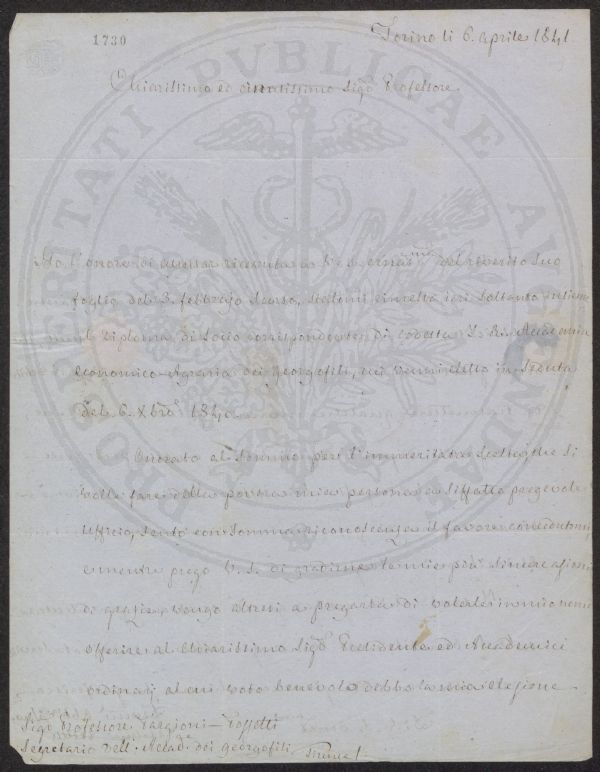 1730
Torino li 6. Aprile 1841
Chiarissimo ed ornatissimo Sigr Professore
Ho l'onore di accusar ricevuta a V. S. del riverito suo
foglio del 3. febbrajo scorso, statomi rimesso ieri soltanto insieme
al Diploma di Socio corrispondente di codesta I. R. Accademia
economico-Agraria dei Georgofili, cui venni eletto in Seduta
del 6. Xbre 1840.
Onorato al sommo per l'immeritata scelta che si
volle fare della povera mia persona a siffatto pregevole
Uffizio, sento con somma riconoscenza il favore
e mentre prego V. S. di gradirne le mie più sincere azioni
di grazie, vengo altresì a pregarla di volerle in mio nome
offerire al Chiarissimo Sigr Presidente ed Accademici
ordinarj al cui voto benevolo debbo la mia elezione.
Sigr Professore Targioni-Tozzetti
Segretario dell'Accad. dei Georgofili Firenze
PROSPERITATI PUBLICAE AUGENDAE